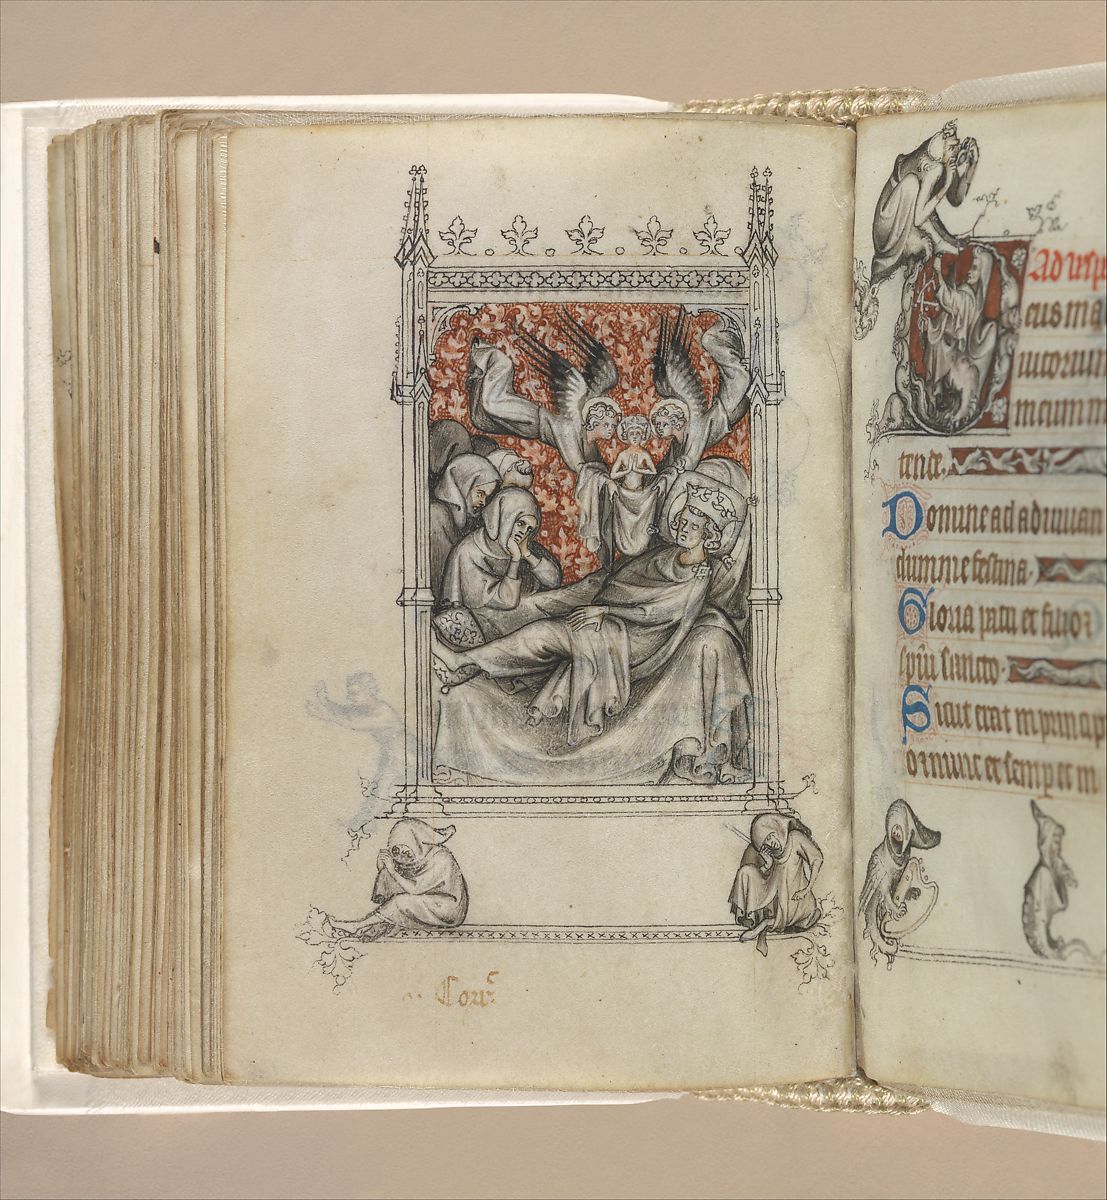 Cor
Ad vesp
eus in a
iutorium
meum in
tende.
Domine ad adiuuan
dum me festina.
Gloria patri et filio
spiritui sancto.
Sicut erat in princip
et nunc et semp et in